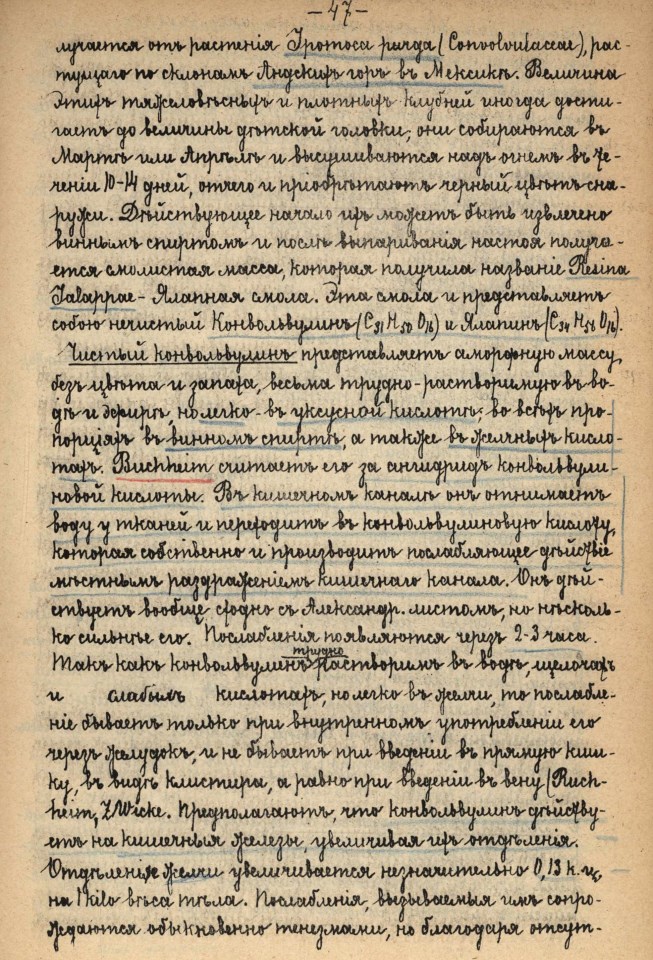 —47—
лучается отъ растенія Ipomoea purga (Convolvulaceae), рас-
тущаго по склонамъ Андскихъ горъ въ Мексикѣ. Величина
этихъ тяжеловѣсныхъ и плотныхъ клубней иногда дости-
гаетъ до величины дѣтской головки; они собираются въ
Мартѣ или Апрѣлѣ и высушиваются надъ огнемъ въ те-
ченіи 10-14 дней, отчего и пріобрѣтаютъ черный цвѣтъ сна-
ружи. Дѣйствующее начало ихъ можетъ быть извлечено
виннымъ спиртомъ и послѣ выпариванія настоя получа-
ется смолистая масса, которая получила названіе Resina
Jalappae - Ялапная смола. Эта смола и представляетъ
собою нечистый Конвольвулинъ (C31 H50 O16) и Ялапинъ (C34 H56 O16).
Чистый конвольвулинъ представляетъ аморфную массу,
безъ цвѣта и запаха, весьма трудно-растворимую въ во-
дѣ и эфирѣ, но легко - въ уксусной кислотѣ; во всѣхъ про-
порціяхъ въ винномъ спиртѣ, а также въ желчныхъ кисло-
тахъ. Buchheim считаетъ его за ангидридъ конвольвули-
новой кислоты. Въ кишечномъ каналѣ онъ отнимаетъ
воду у тканей и переходитъ въ конвольвулиновую кислоту,
которая собственно и производитъ послабляющее дѣйствіе
мѣстнымъ раздраженіемъ кишечнаго канала. Онъ дѣй-
ствуетъ вообще сходно съ Александр. листомъ, но нѣсколь-
ко сильнѣе его. Послабленія появляются черезъ 2-3 часа.
Такъ какъ конвольвулинъ трудно растворимъ въ водѣ, щелочахъ
и слабымъ кислотахъ, но легко въ желчи, то послабле-
ніе бываетъ только при внутренномъ употребленіи его
черезъ желудокъ, и не бываетъ при введеніи въ прямую киш-
ку, въ видѣ клистира, а равно при введеніи въ вену (Buch-
heim, Zwicke. Предполагаютъ, что конвольвулинъ дѣйству-
етъ на кишечныя железы, увеличивая ихъ отдѣленія.
Отдѣленіе желчи увеличивается незначительно 0,13 к. ц.
на 1 kilo вѣса тѣла. Послабленія, вызываемыя имъ сопро-
ждаются обыкновенно тенезмами, но благодаря отсут-